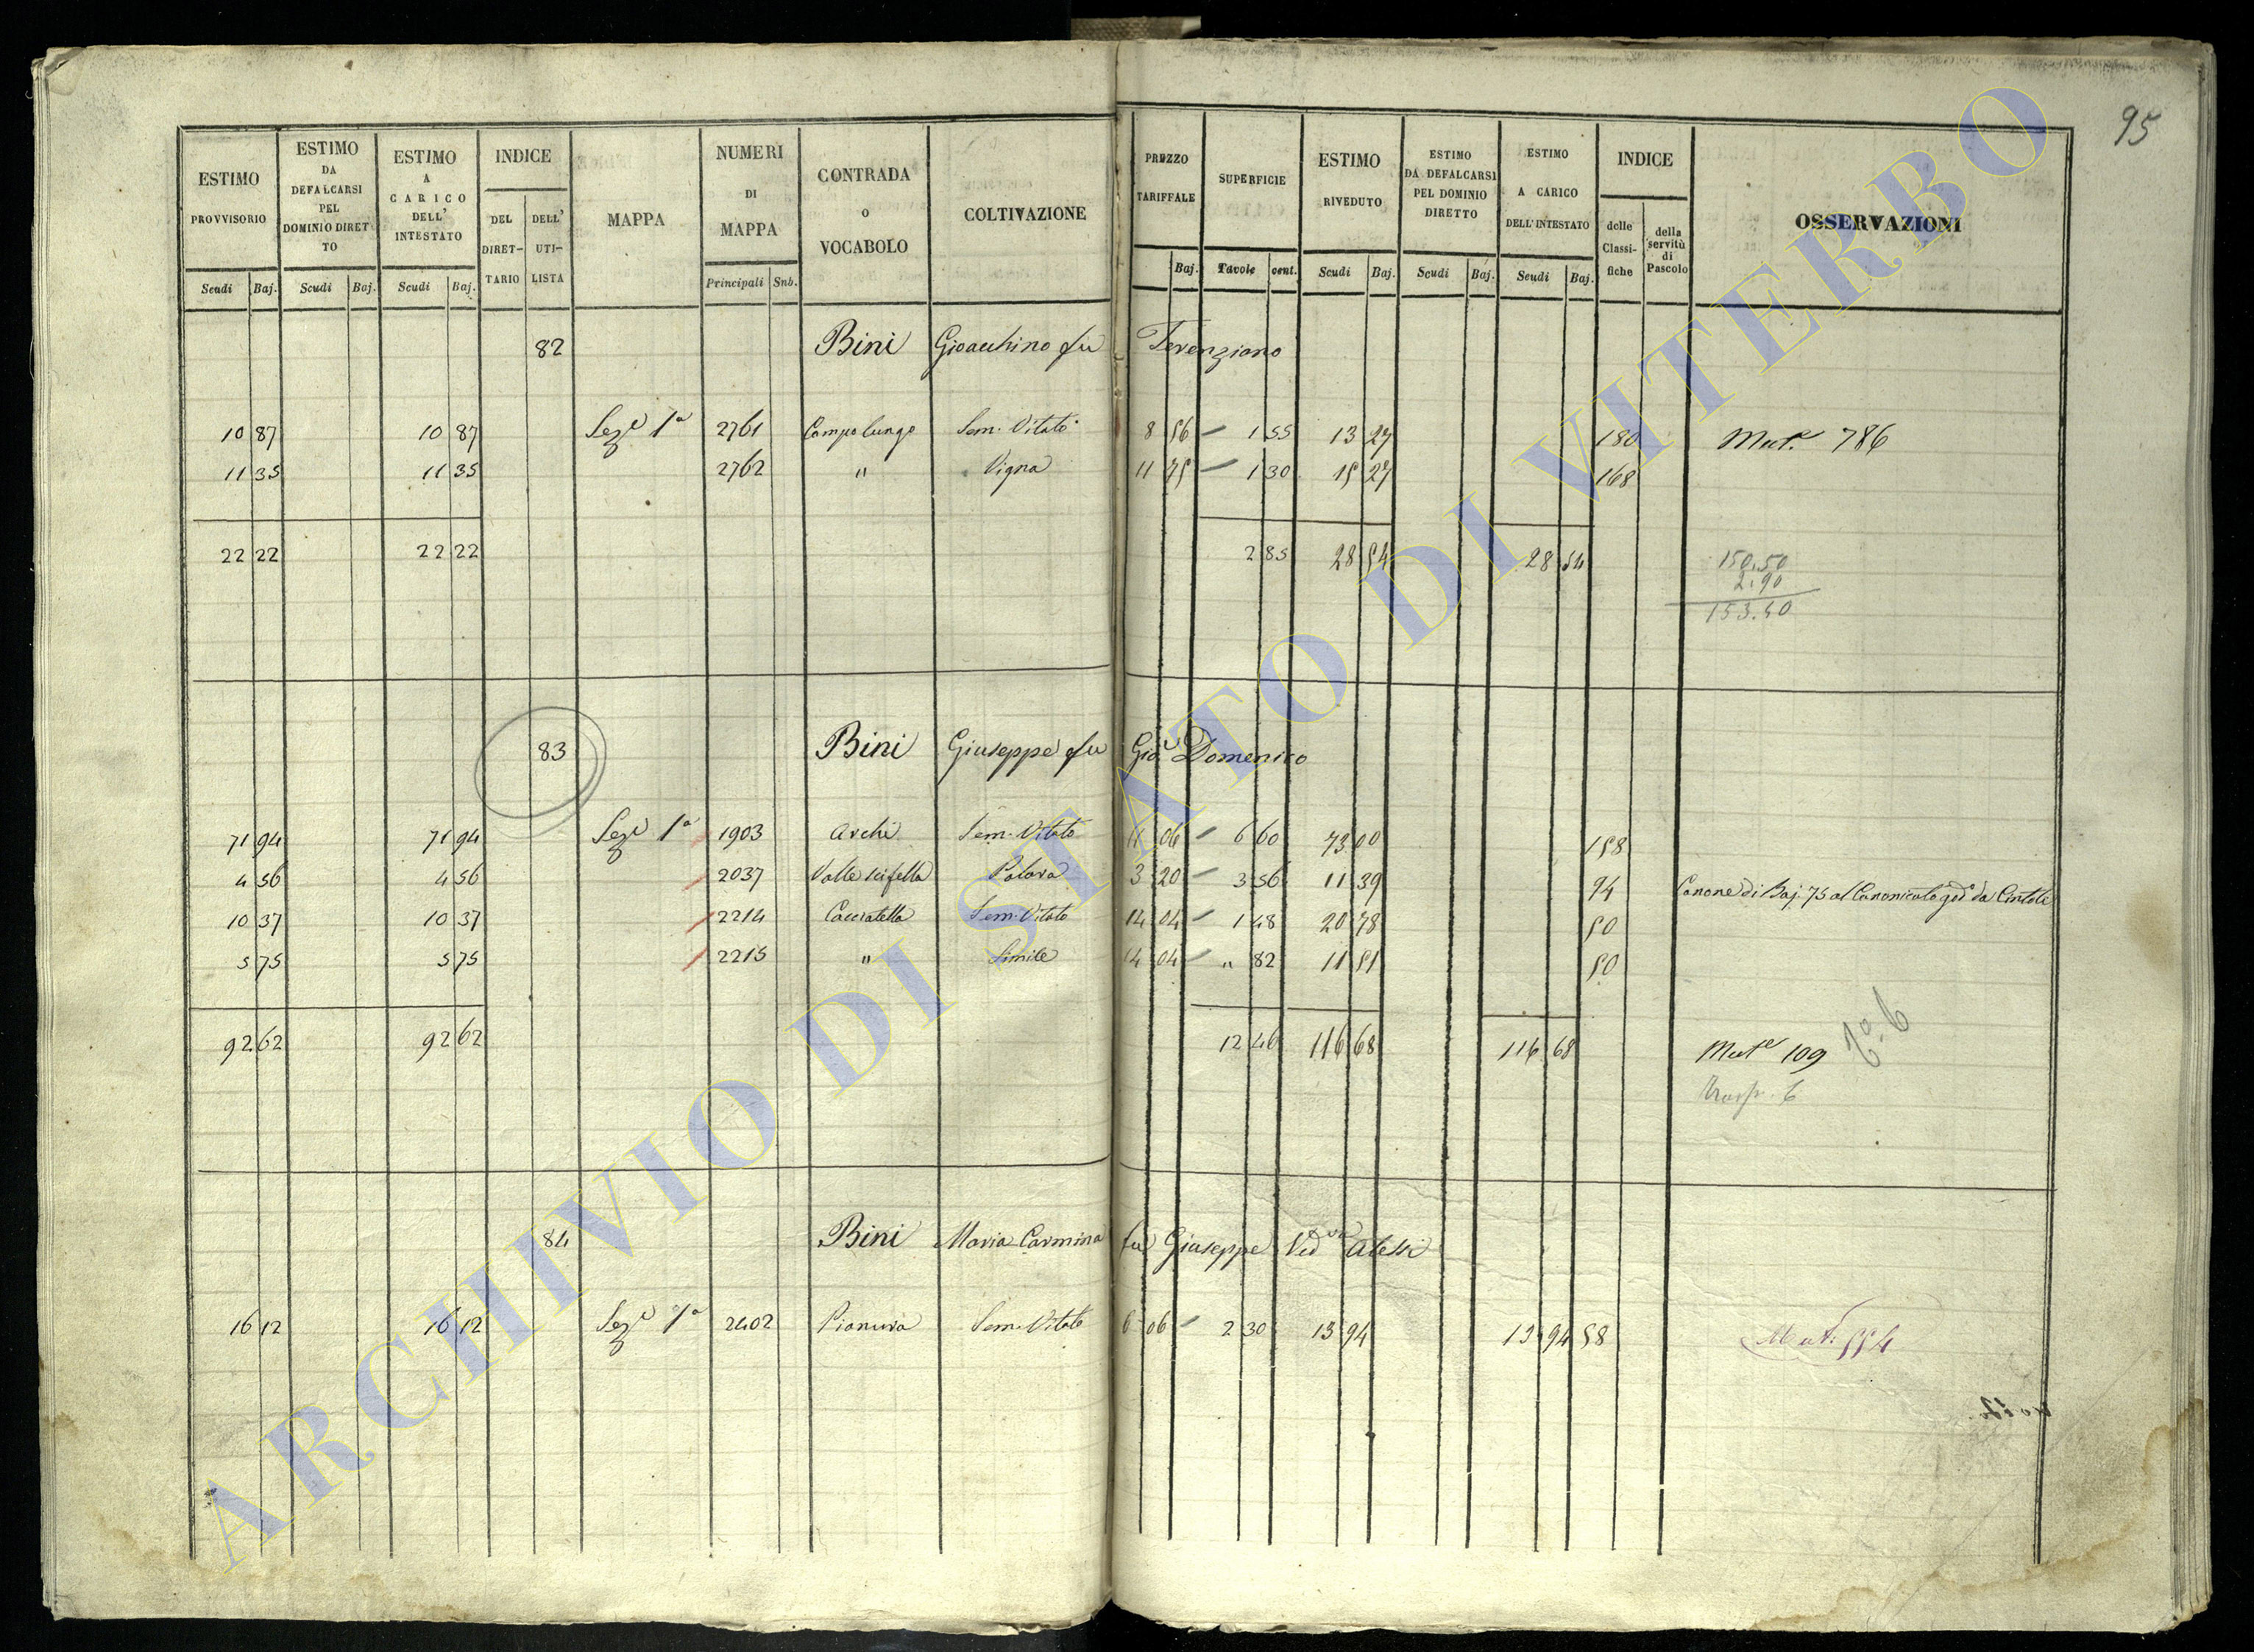 95
ESTIMO PROVVISORIO Scudi Baj. ESTIMO DA DEFALCARSI PEL DOMINIO DIRETTO Scudi Baj. ESTIMO A CARICO DELL' INTESTATO Scudi Baj. INDICE DEL DIRET-TARIO DELL' UTI-LISTA MAPPA NUMERI DI MAPPA Principali Snb. CONTRADA O VOCABOLO COLTIVAZIONE PREZZO TARIFFALE Baj. SUPERFICIE Tavole cent. ESTIMO RIVEDUTO Scudi Baj. ESTIMO DA DEFALCARSI PEL DOMINIO DIRETTO Scudi Baj. ESTIMO A CARICO DELL'INTESTATO Scudi Baj. INDICE delle Classi-fiche della servitù di Pascolo OSSERVAZIONI
82 Bini Gioacchino fu Terenziano
10 87 10 87 Seze 1a 2761 Campo lungo Sem. Vitato 8 56 1 55 13 27 180 Mute 786
11 35 11 35 2762 " Vigna 11 75 1 30 15 27 168
22 22 22 22 2 85 28 54 28 54
150.50
2.90
153.40
83 Bini Giuseppe fu Gio Domenico
71 94 71 94 Seze 1a 1903 Archi Sem. Vitato 11 06 6 60 73 00 158
4 56 4 56 2037 Valle scifella 3 20 3 56 11 39 94 Canone di Baj. 75 al Canonicato god. da
10 37 10 37 2214 Sem. Vitato 14 04 1 48 20 78 50
5 75 5 75 2215 " Simile 14 04 " 82 11 51 50
92 62 92 62 12 46 116 68 116 68 Mute 109
84 Bini Maria Carmina fu Giuseppe Ved va Alessi
16 12 16 12 Seze 1a 2402 Pianura Sem. Vitato 6 06 2 30 13 94 13 94 58 Mut. 554
ARCHIVIO DI STATO DI VITERBO